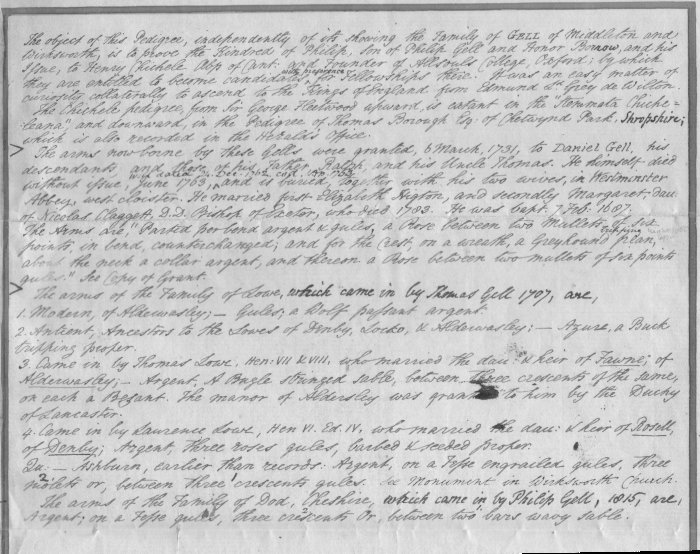 The object of this Pedigree, independently of its showing the Family of GELL of Middleton and
Wirksworth, is to prove the Kindred of Philip, Son of Philip Gell and Honor Borrow, and his
Issue, to Henry Chichele Abp of Cant: and Founder of Allsouls College, Oxford; by which
they are entitled to become candidates, with preference, for Fellowships there. It was an easy matter of
curiosity collaterally to ascend to the Kings of England from Edmund Ld Grey de Wilton.
The Chichele pedigree, from Sir George Fleetwood upward, is extant in the Stemmata Chiche-
leana; and downward, in the Pedigree of Thomas Borough Esq. of Chetwynd Park, Shropshire;
which is also recorded in the Herald's Office.
The arms now borne by these Gells were granted, 6 March, 1731, to Daniel Gell, his
descendants, and those of his Father Ralph, and his Uncle Thomas. He himself died
without issue, June 1763, and is buried, together with his two wives, in Westminster
Abbey, west cloister. He married first Elizabeth Higton, and secondly Margaret, dau:
of Nicolas Claggett, D.D. Bishop of Exeter, who died 1783. He was bapt. 7 Feb. 1687.
The Arms are "Parted per bend argent & gules, a Rose between two Mullets of six
points in bend, counterchanged; and for the Crest, on a wreath, a Greyhound tripping
about the neck a collar argent, and thereon a Rose between two mullets of six points
gules." See Copy of Grant.
The arms of the Family of Lowe, which came in by Thomas Gell 1707, are,
1. Modern, of Alderwasley; — Gules, a Wolf passant argent.
2. Antient, Ancestors to the Lowes of Denby, Locko, & Alderwasley; — Azure, a Buck
tripping proper.
3. Came in by Thomas Lowe, Hen: VII & VIII, who married the dau: & heir of Fawne, of
Alderwasley; — Argent, A Bugle stringed sable, between three crescents of the same,
on each a Bezant. The manor of Aldersley was grant to him by the Duchy
of Lancaster.
4. Came in by Laurence Lowe, Hen VI. Ed. IV, who married the dau: & heir of Rosell,
of Denby; Argent, three roses gules, barbed & seeded proper.
Qu: — Ashburn, earlier than records. Argent, on a Fesse engrailed gules, three
mullets or, between three crescents gules. See Monument in Wirksworth Church.
The arms of the Family of Dod, Cheshire, which came in by Philip Gell, 1815, are,
Argent; on a Fesse gules, three crescents Or, between two bars wavy sable.